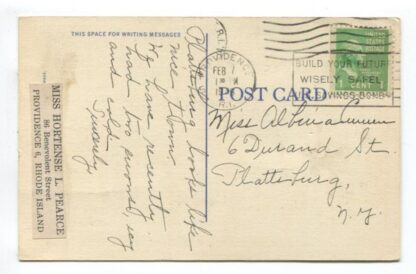 THIS SPACE FOR WRITING MESSAGES
Plattsburg looks like
nice town.
We have recently
had two
and cold.
Sincerely
MISS HORTENSE L. PEARCE
86 Benevolent Street
PROVIDENCE 6, RHODE ISLAND
PROVIDENCE
FEB 7
R.I.
BUILD YOUR FUTURE
WISELY SAFEL
SAVINGS BOND
CENT
POST CARD
Miss Albina
6 Durand St
Plattsburg,
N.Y.